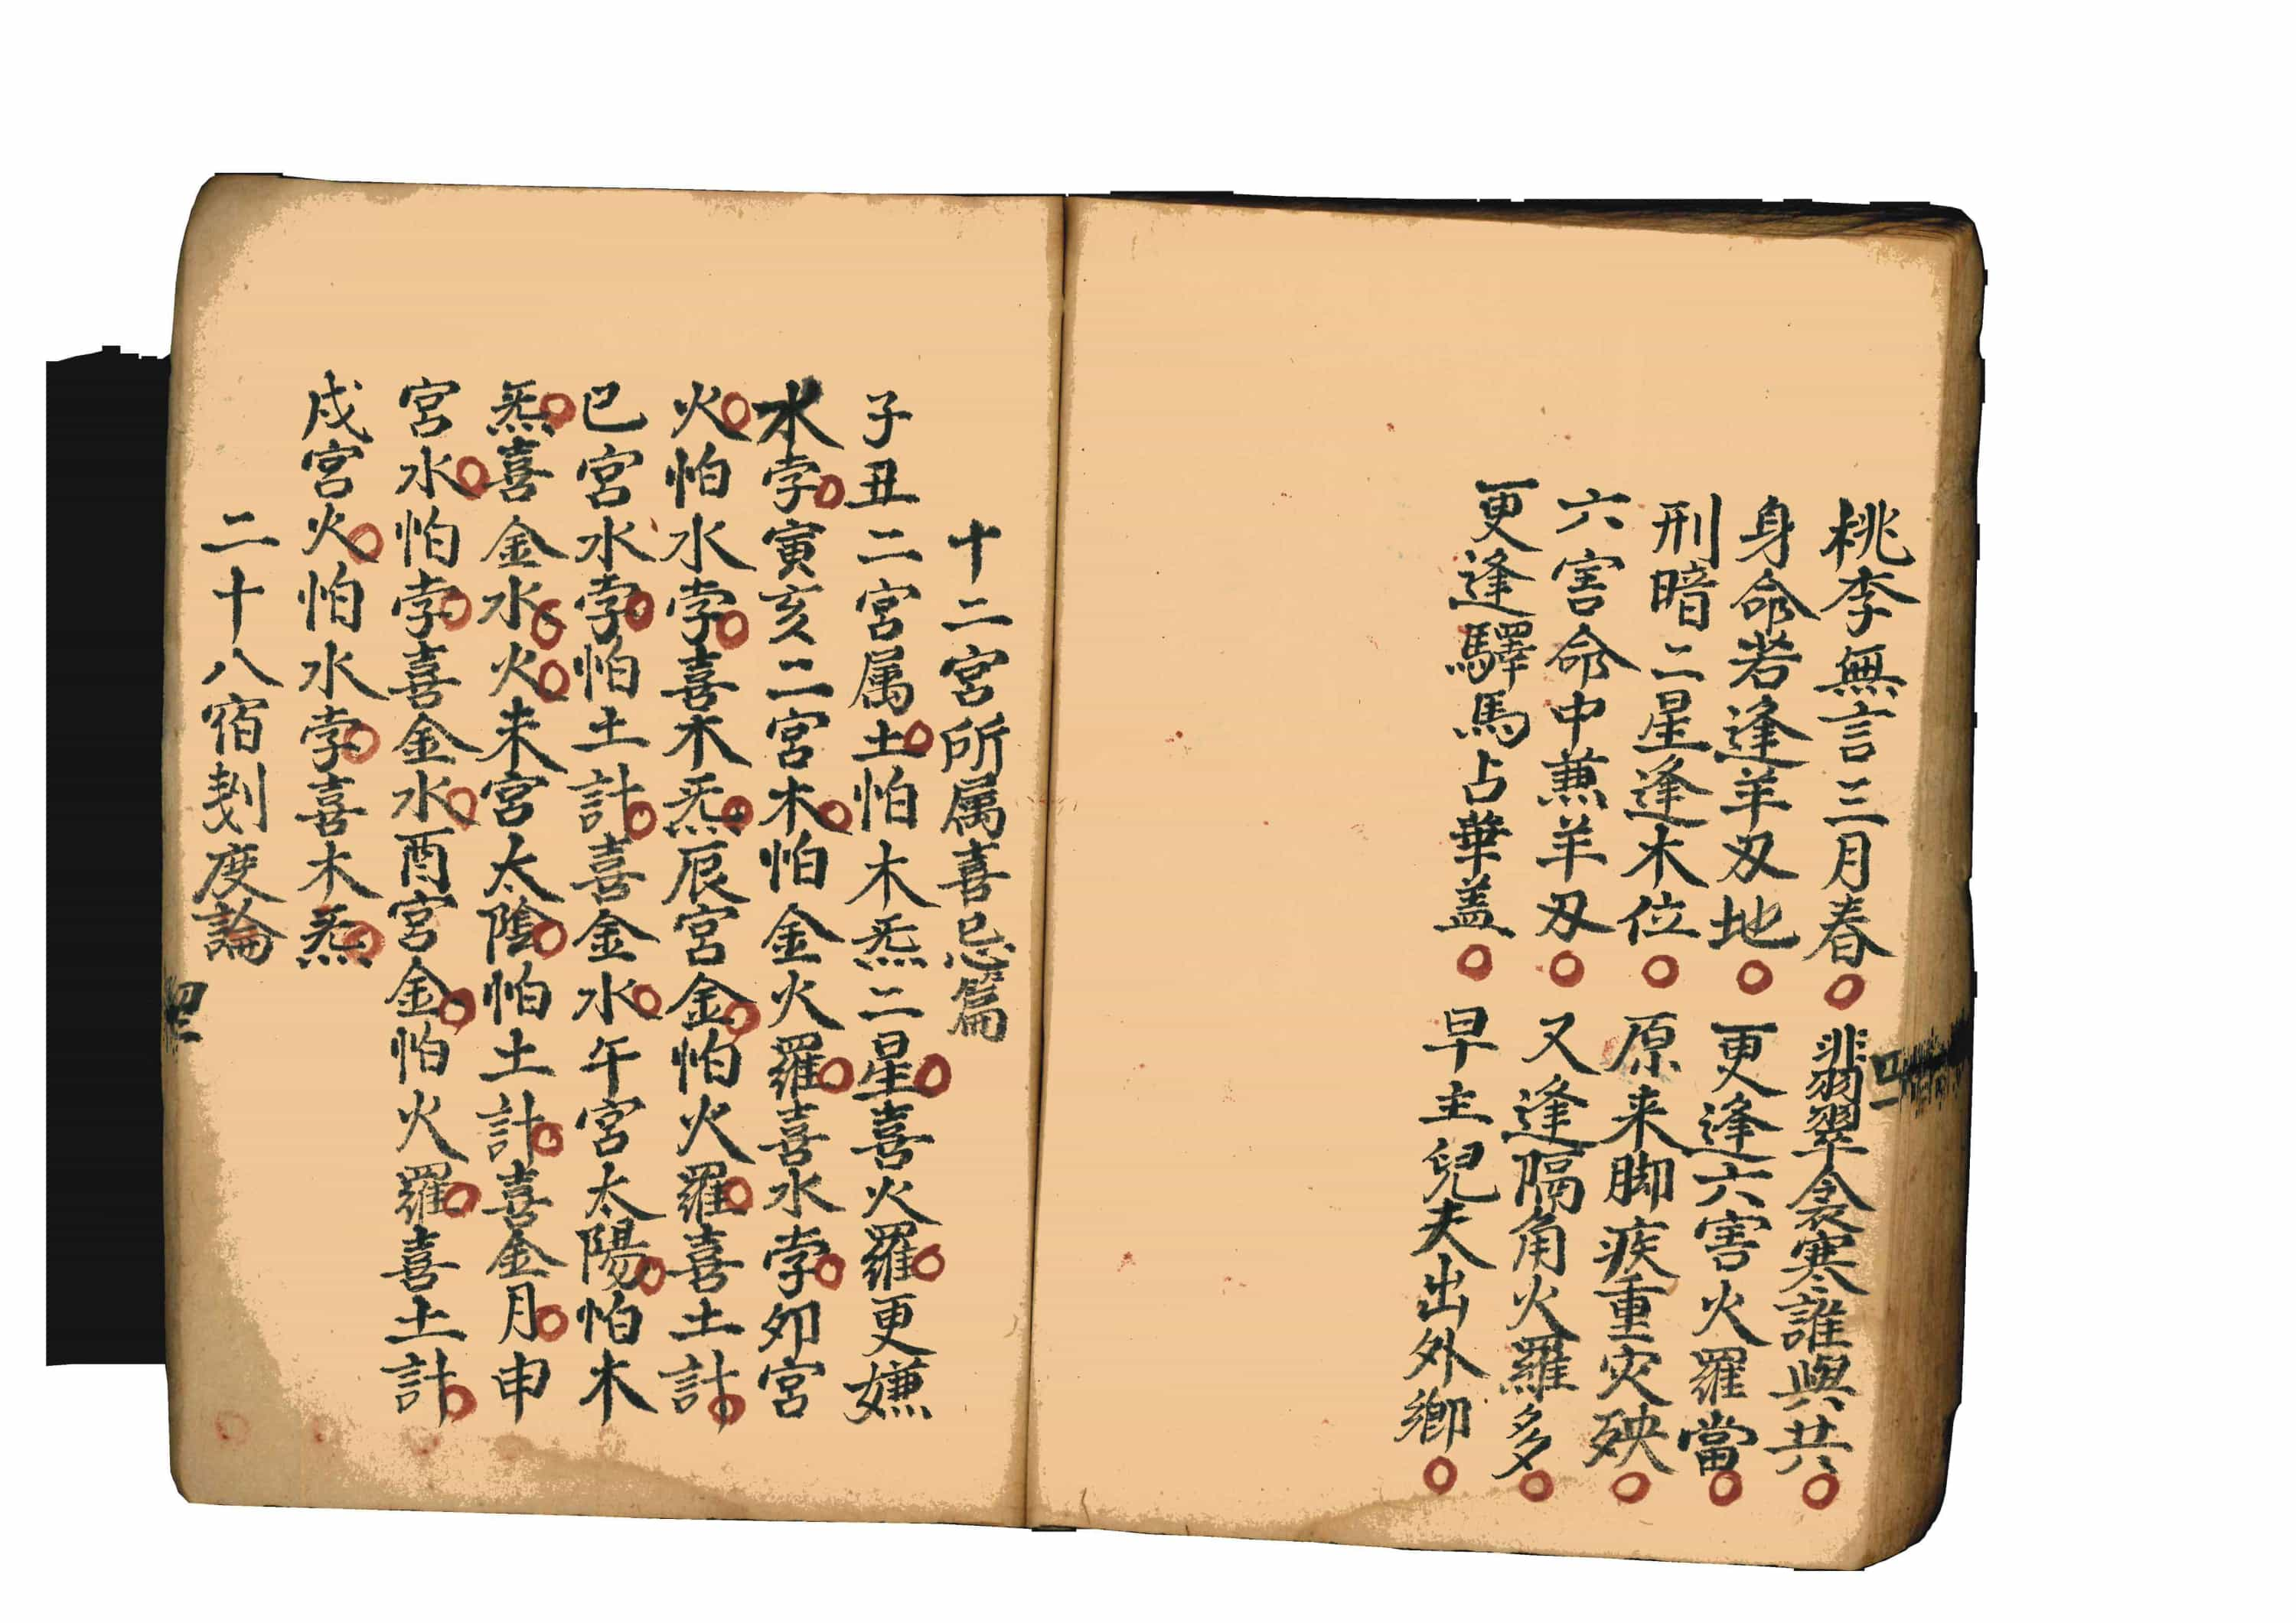 桃李無言三月春○翡翠衾寒誰與共○
身命若逢羊刃地○更逢六害火羅當○
刑暗二星逢木位○原来脚疾重灾殃○
六害命中兼羊刃○又逢隔角火羅多○
更逢驛馬占華盖○早主兒夫出外鄉○
十二宮所属喜忌篇
子丑二宮属土○怕木炁二星○喜火羅○更嫌
水孛○寅亥二宮木○怕金火羅○喜水孛○夘宮
火○怕水孛○喜木炁○辰宮金○怕火羅○喜土計○
巳宮水孛○怕土計○喜金水○午宮太陽○怕木
炁○喜金水○火○未宮太陰○怕土計○喜金月○申
宮水○怕孛○喜金水○酉宮金○怕火羅○喜土計○
戌宮火○怕水孛○喜木炁○
二十八宿剋度論